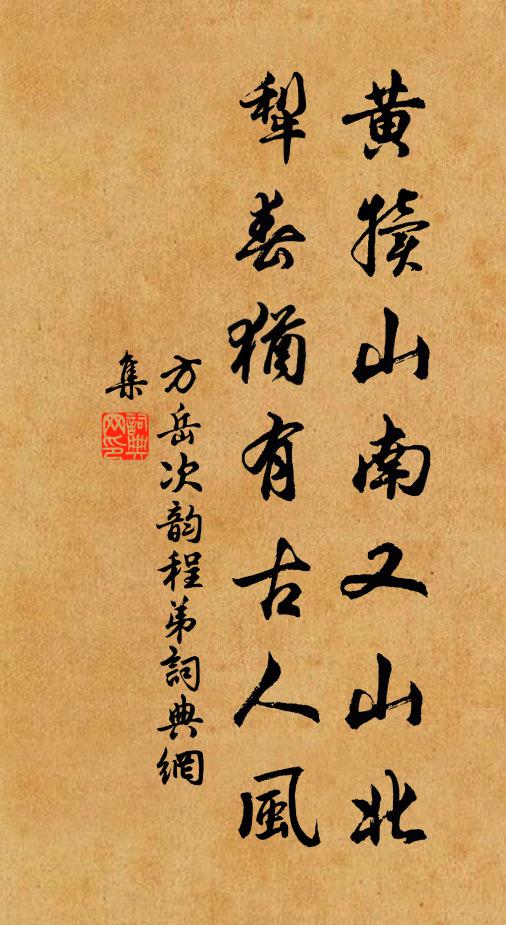 黄犢山南又山北
犁春猶有古人風
方岳次韵程弟詞典網
集
詞典
网印